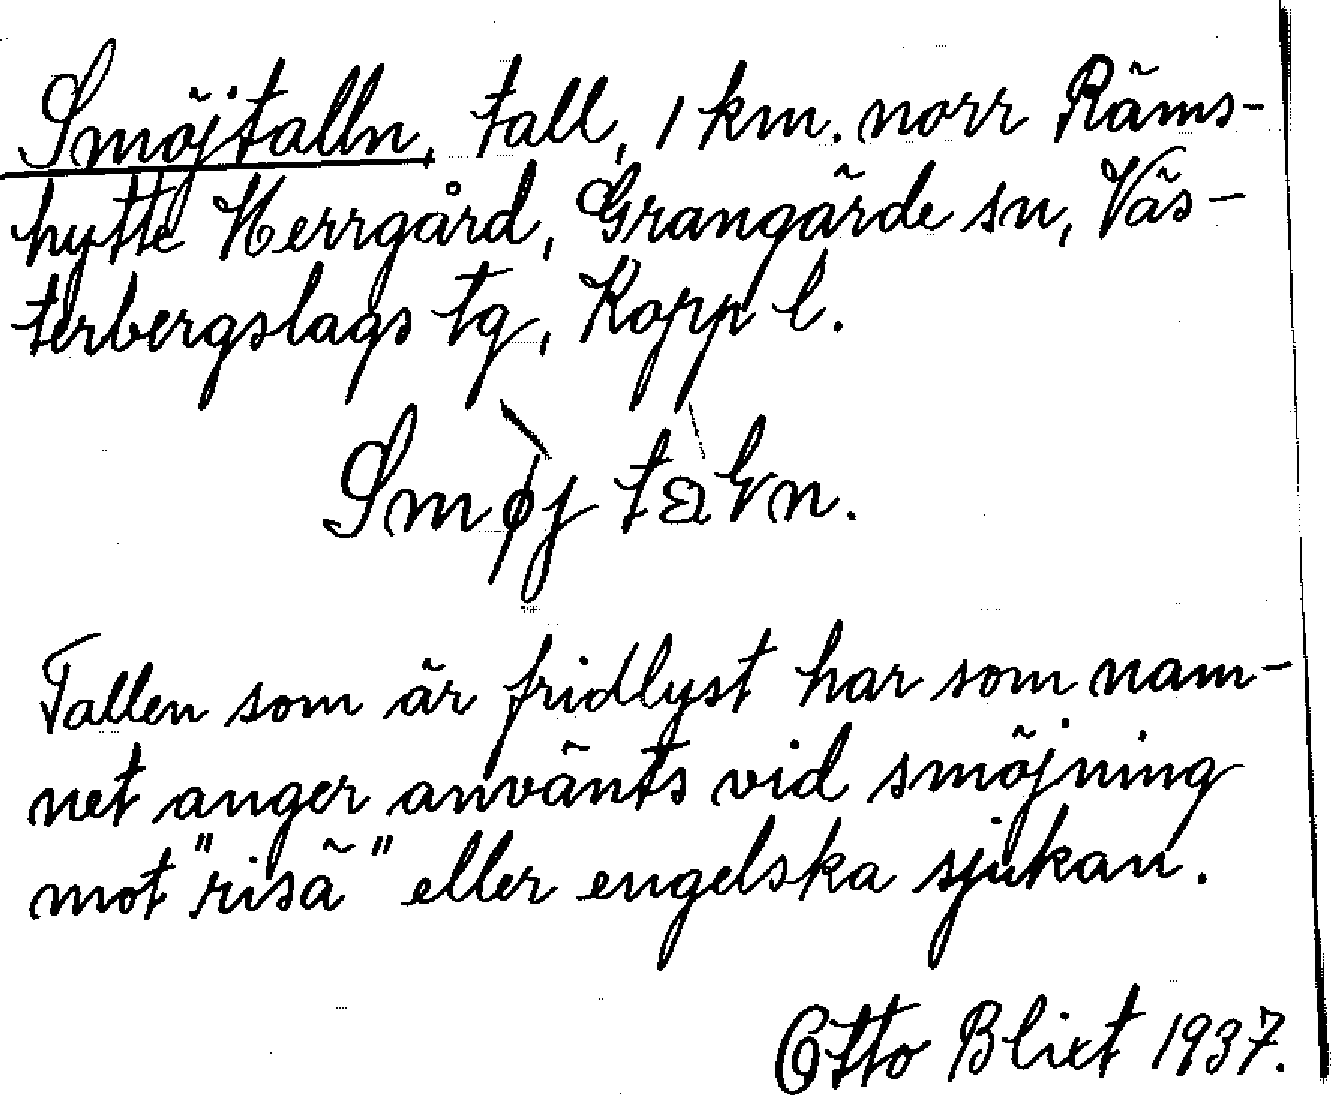 Smöjtalln, tall, 1 km. norr Räms-
hytte Herrgård, Grangärde sn, Väs-
terbergslags tg, Kopp l.
Smøj taln.
Tallen som är fridlyst har som nam-
net anger använts vid smöjning
mot "riså" eller engelska sjukan.
Otto Blixt 1937.